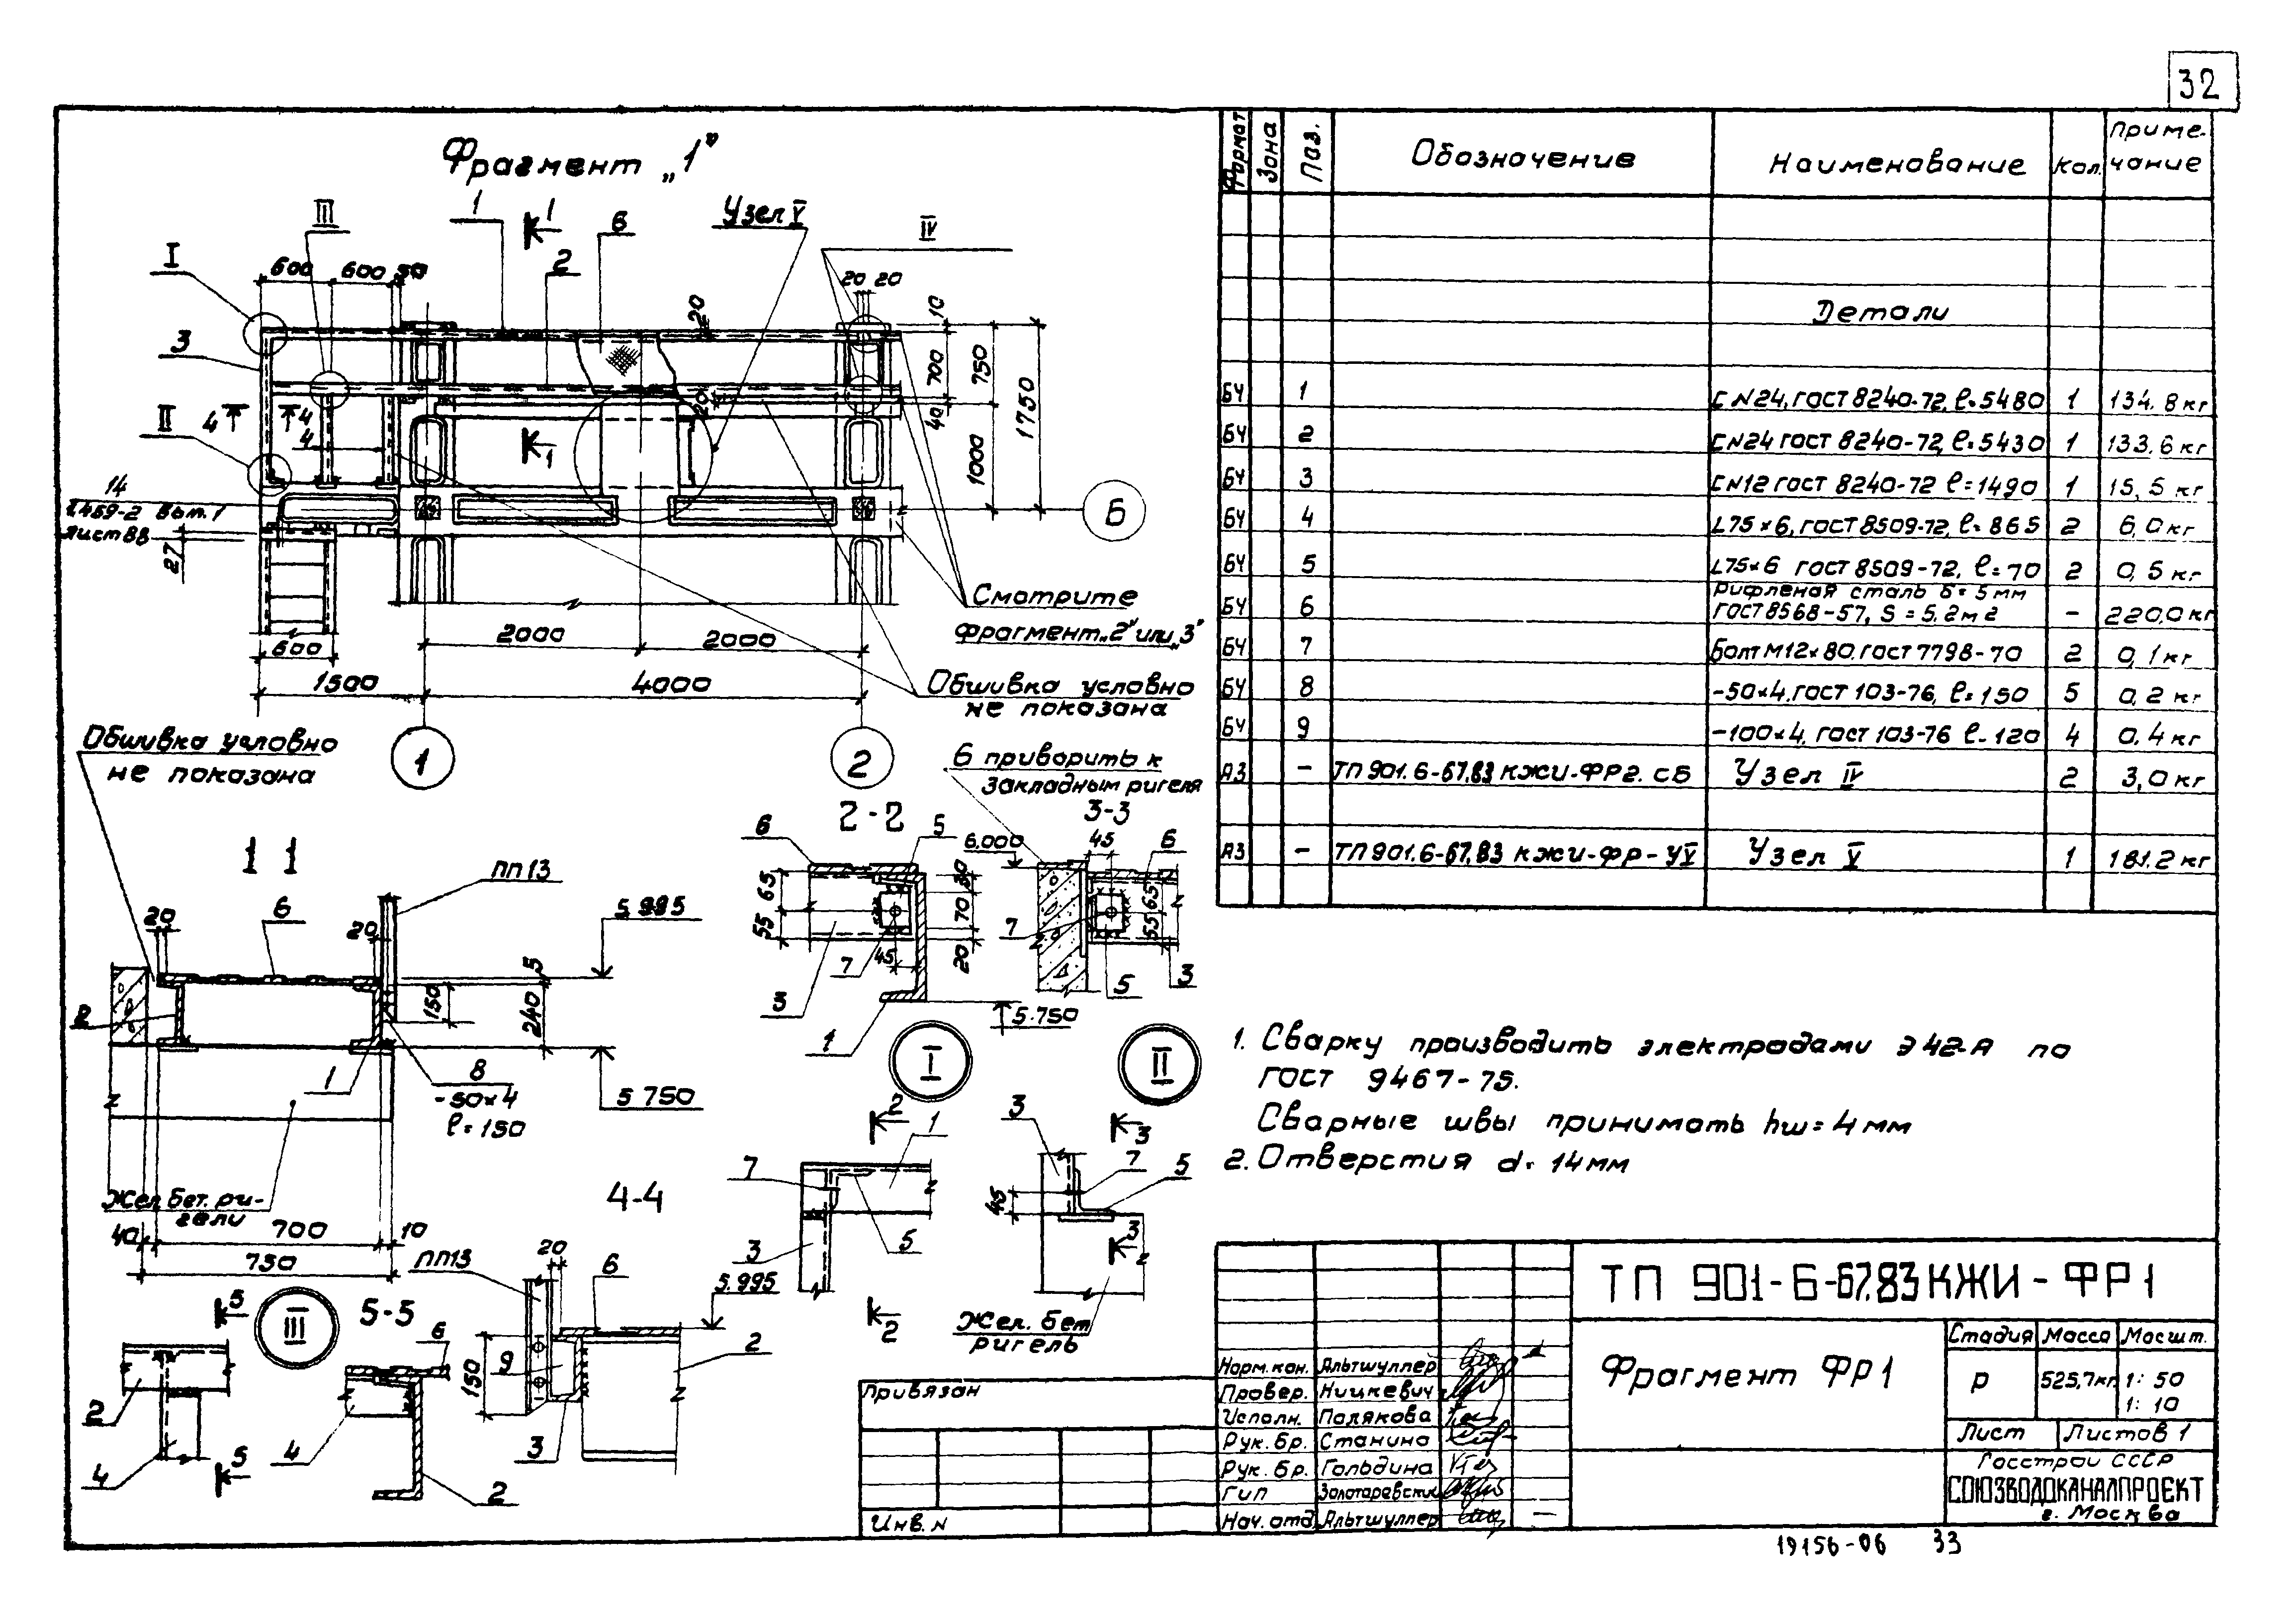 32
Фрагмент „1”
I
III
1
1
6
Узел V
IV
2
600
600
50
20
20
20
10
3
700
750
1750
40
1000
20
II
4
4
4
1
14
1.459-2 вып. 1
лист 88
27
Б
Смотрите
фрагмент „2” или „3”
600
2000
2000
1500
4000
Обшивка условно
не показана
1
2
Обшивка условно
не показана
1 1
ПП13
20
6
20
5.995
5
150
240
2
1
8
-50×4
ℓ=150
5 750
Жел.бет. ри-
гели
40
700
10
750
2-2
6
5
65
55
30
70
20
45
7
3
1
5.750
6 приварить к
закладным ригеля
3-3
6.000
45
6
65
55
7
5
3
I
II
2
1
7
3
5
2
3
3
7
5
45
3
Жел. бет
ригель
III
5
5-5
6
2
4
5
4
2
4-4
ПП13
20
6
5.995
150
9
2
3
Формат
Зона
Поз.
Обозначение
Наименование
Кол.
Приме-
чание
Детали
БЧ 1 С N24, ГОСТ 8240-72, ℓ=5480 1 134.8 кг
БЧ 2 С N24 ГОСТ 8240-72, ℓ=5430 1 133.6 кг
БЧ 3 С N12 ГОСТ 8240-72 ℓ=1490 1 15,5 кг
БЧ 4 L75×6, ГОСТ 8509-72, ℓ=865 2 6,0 кг
БЧ 5 L75×6 ГОСТ 8509-72, ℓ=70 2 0,5 кг
Рифленая сталь δ=5мм
БЧ 6 ГОСТ 8568-57, S=5,2м2 - 220,0 кг
БЧ 7 Болт М12×80, ГОСТ 7798-70 2 0,1 кг
БЧ 8 -50×4, ГОСТ 103-76, ℓ=150 5 0,2 кг
БЧ 9 -100×4, ГОСТ 103-76 ℓ-120 4 0.4 кг
А3 - ТП 901.6-67.83 КЖИ-ФР2. СБ Узел IV 2 3,0 кг
А3 - ТП 901.6-67.83 КЖИ-ФР-УV Узел V 1 181.2 кг
1. Сварку производить электродами Э42-А по
ГОСТ 9467-75.
Сварные швы принимать hш=4мм
2. Отверстия d=14мм
ТП 901-6-67.83 КЖИ-ФР1
Фрагмент ФР1
Стадия Масса Масшт.
Р 525,7кг 1:50
1:10
Лист Листов 1
Госстрой СССР
СОЮЗВОДОКАНАЛПРОЕКТ
г. Москва
Норм.кон. Альтшуллер
Провер. Ницкевич
Исполн. Полякова
Рук. бр. Станина
Рук. бр. Гольдина
ГИП Золотаревский
Нач. отд Альтшуллер
Привязан
Инв. N
19156-06 33